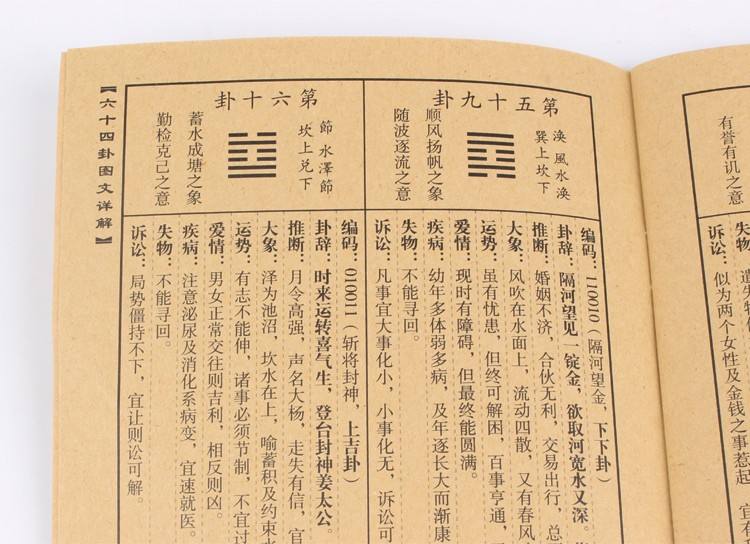 有誉有讥之意
诉讼：似为两个女性及金钱之事惹起
第五十九卦
涣 風水涣
巽上坎下
顺风扬帆之象
随波逐流之意
编码：110010（隔河望金，下下卦）
卦辞：隔河望见一锭金，欲取河宽水又深。
推断：婚姻不济，合伙无利，交易出行，总
大象：风吹在水面上，流动四散，又有春风
运势：虽有忧患，但终可解困，百事亨通，
爱情：现时有障碍，但最终能圆满。
疾病：幼年多体弱多病，及年逐长大而渐康
失物：不能寻回。
诉讼：凡事宜大事化小，小事化无，诉讼可
第六十卦
節 水澤節
坎上兑下
蓄水成塘之象
勤检克己之意
编码：010011（斩将封神，上吉卦）
卦辞：时来运转喜气生，登台封神姜太公。
推断：月令高强，声名大杨，走失有信，官
大象：泽为池沼，坎水在上，喻蓄积及约束
运势：有志不能伸，诸事必须节制，不宜过
爱情：男女正常交往则吉利，相反则凶。
疾病：注意泌尿及消化系病变，宜速就医。
失物：不能寻回。
诉讼：局势僵持不下，宜让则讼可解。
【六十四卦图文详解】